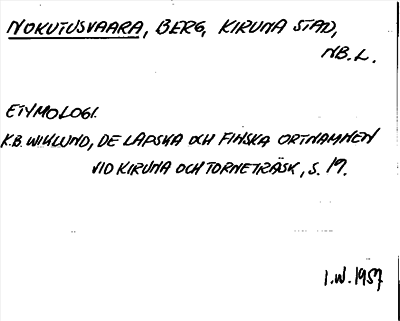 NOKUTUSVAARA, BERG, KIRUNA STAD,
NB. L.
ETYMOLOGI.
K.B. WIKLUND, DE LAPSKA OCH FINSKA ORTNAMNEN
VID KIRUNA OCH TORNETRÄSK, S. 19.
I.W. 1957